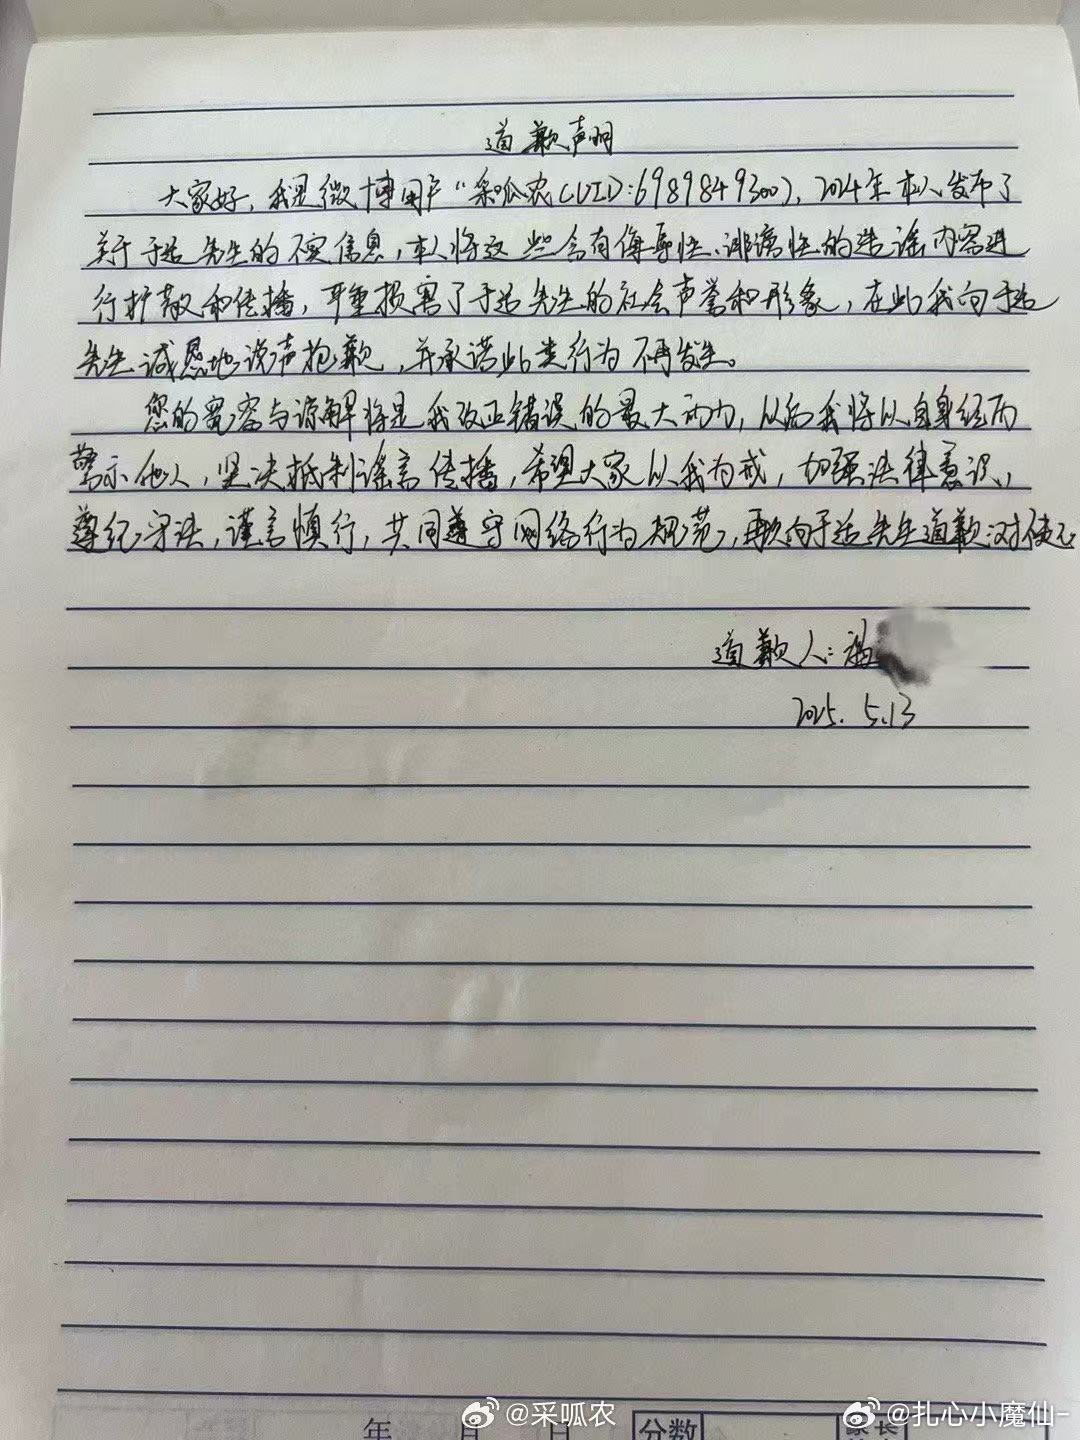 道歉声明
大家好，我是微博用户“采呱农(UID:6989849300)，2024年本人发布了
关于于适先生的不实信息，本人将这些含有侮辱性、诽谤性的造谣内容进
行扩散和传播，严重损害了于适先生的社会声誉和形象，在此我向于适
先生诚恳地说声抱歉，并承诺此类行为不再发生。
您的宽容与谅解将是我改正错误的最大动力，以后我将以自身经历
警示他人，坚决抵制谣言传播，希望大家以我为戒，加强法律意识，
遵纪守法，谨言慎行，共同遵守网络行为规范，再次向于适先生道歉：对使不
道歉人：
2025. 5.13
年 月 日 分数 家长
@采呱农 @扎心小魔仙-